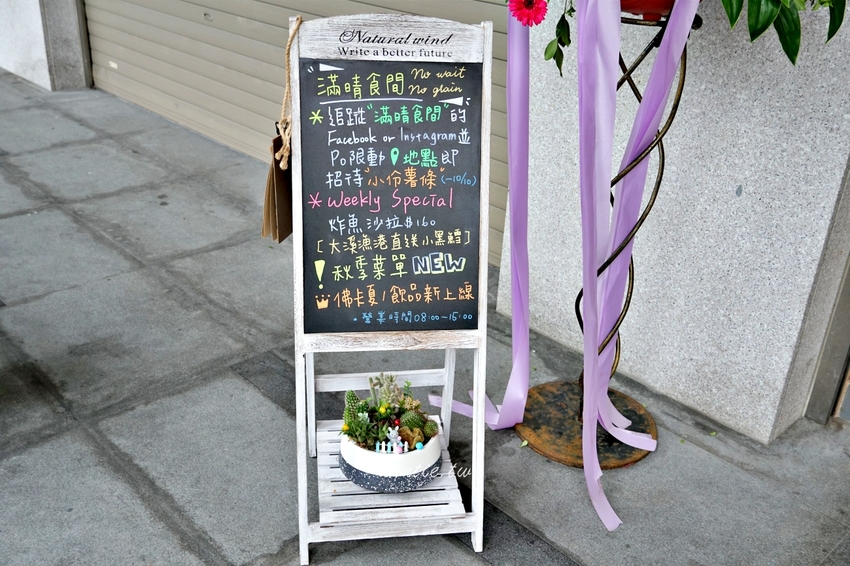 Natural wind
Write a better future
"滿晴食間 No wait
No grain
*追蹤"滿晴食間"的
Facebook or Instagram並
Po限動 地點即
招待"小份薯條"(~10/10)
*Weekly Special
炸魚沙拉$160
[大溪漁港直送小黑鱈]
!秋季菜單NEW
佛卡夏/飲品新上線
•營業時間08:00~15:00